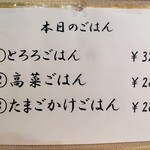 本日のごはん
①とろろごはん ¥32
②高菜ごはん ¥2
③たまごかけごはん ¥28